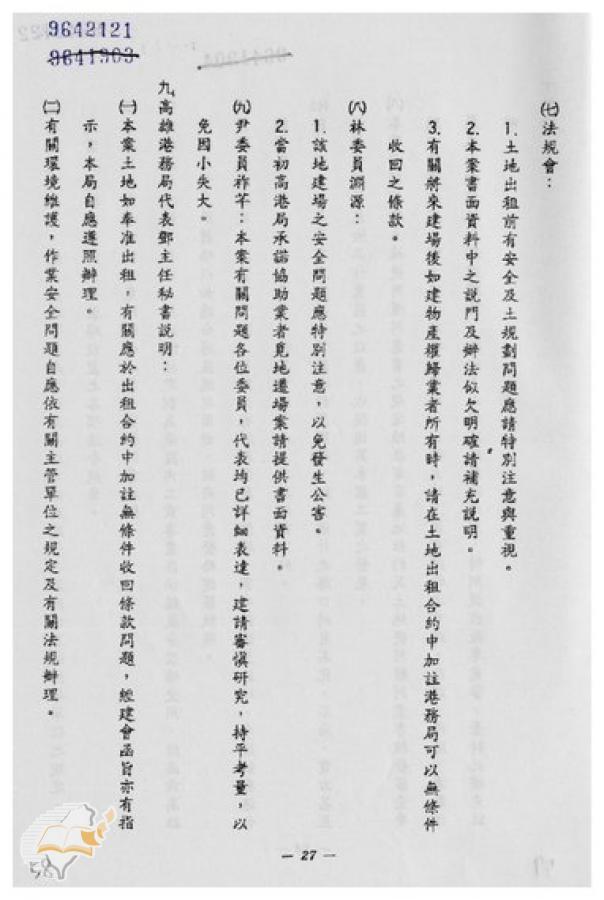 9642121
9641903
9641904
㈦法規會：
1.土地出租前有安全及土規劃問題應請特別注意與重視。
2.本案書面資料中之說門及辦法似欠明確請補充說明。
3.有關將來建場後如建物產權歸業者所有時，請在土地出租合約中加註港務局可以無條件
收回之條款。
㈧林委員淵源：
1.該地建場之安全問題應特別注意，以免發生公害。
2.當初高港局承諾協助業者覓地遷場案請提供書面資料。
㈨尹委員祚芊：本案有關問題各位委員，代表均已詳細表達，建請審慎研究，持平考量，以
免因小失大。
九、高雄港務局代表鄧主任秘書說明：
㈠本案土地如奉准出租，有關應於出租合約中加註無條件收回條款問題，經建會函旨亦有指
示，本局自應遵照辦理。
㈡有關環境維護，作業安全問題自應依有關主管單位之規定及有關法規辦理。
— 27 —
58